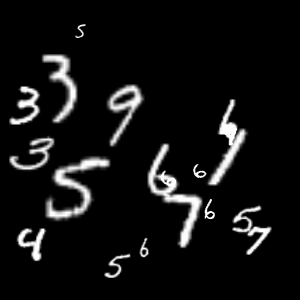 5
3
3 9
3
5 6 6
7 6 5
4 7
5 6